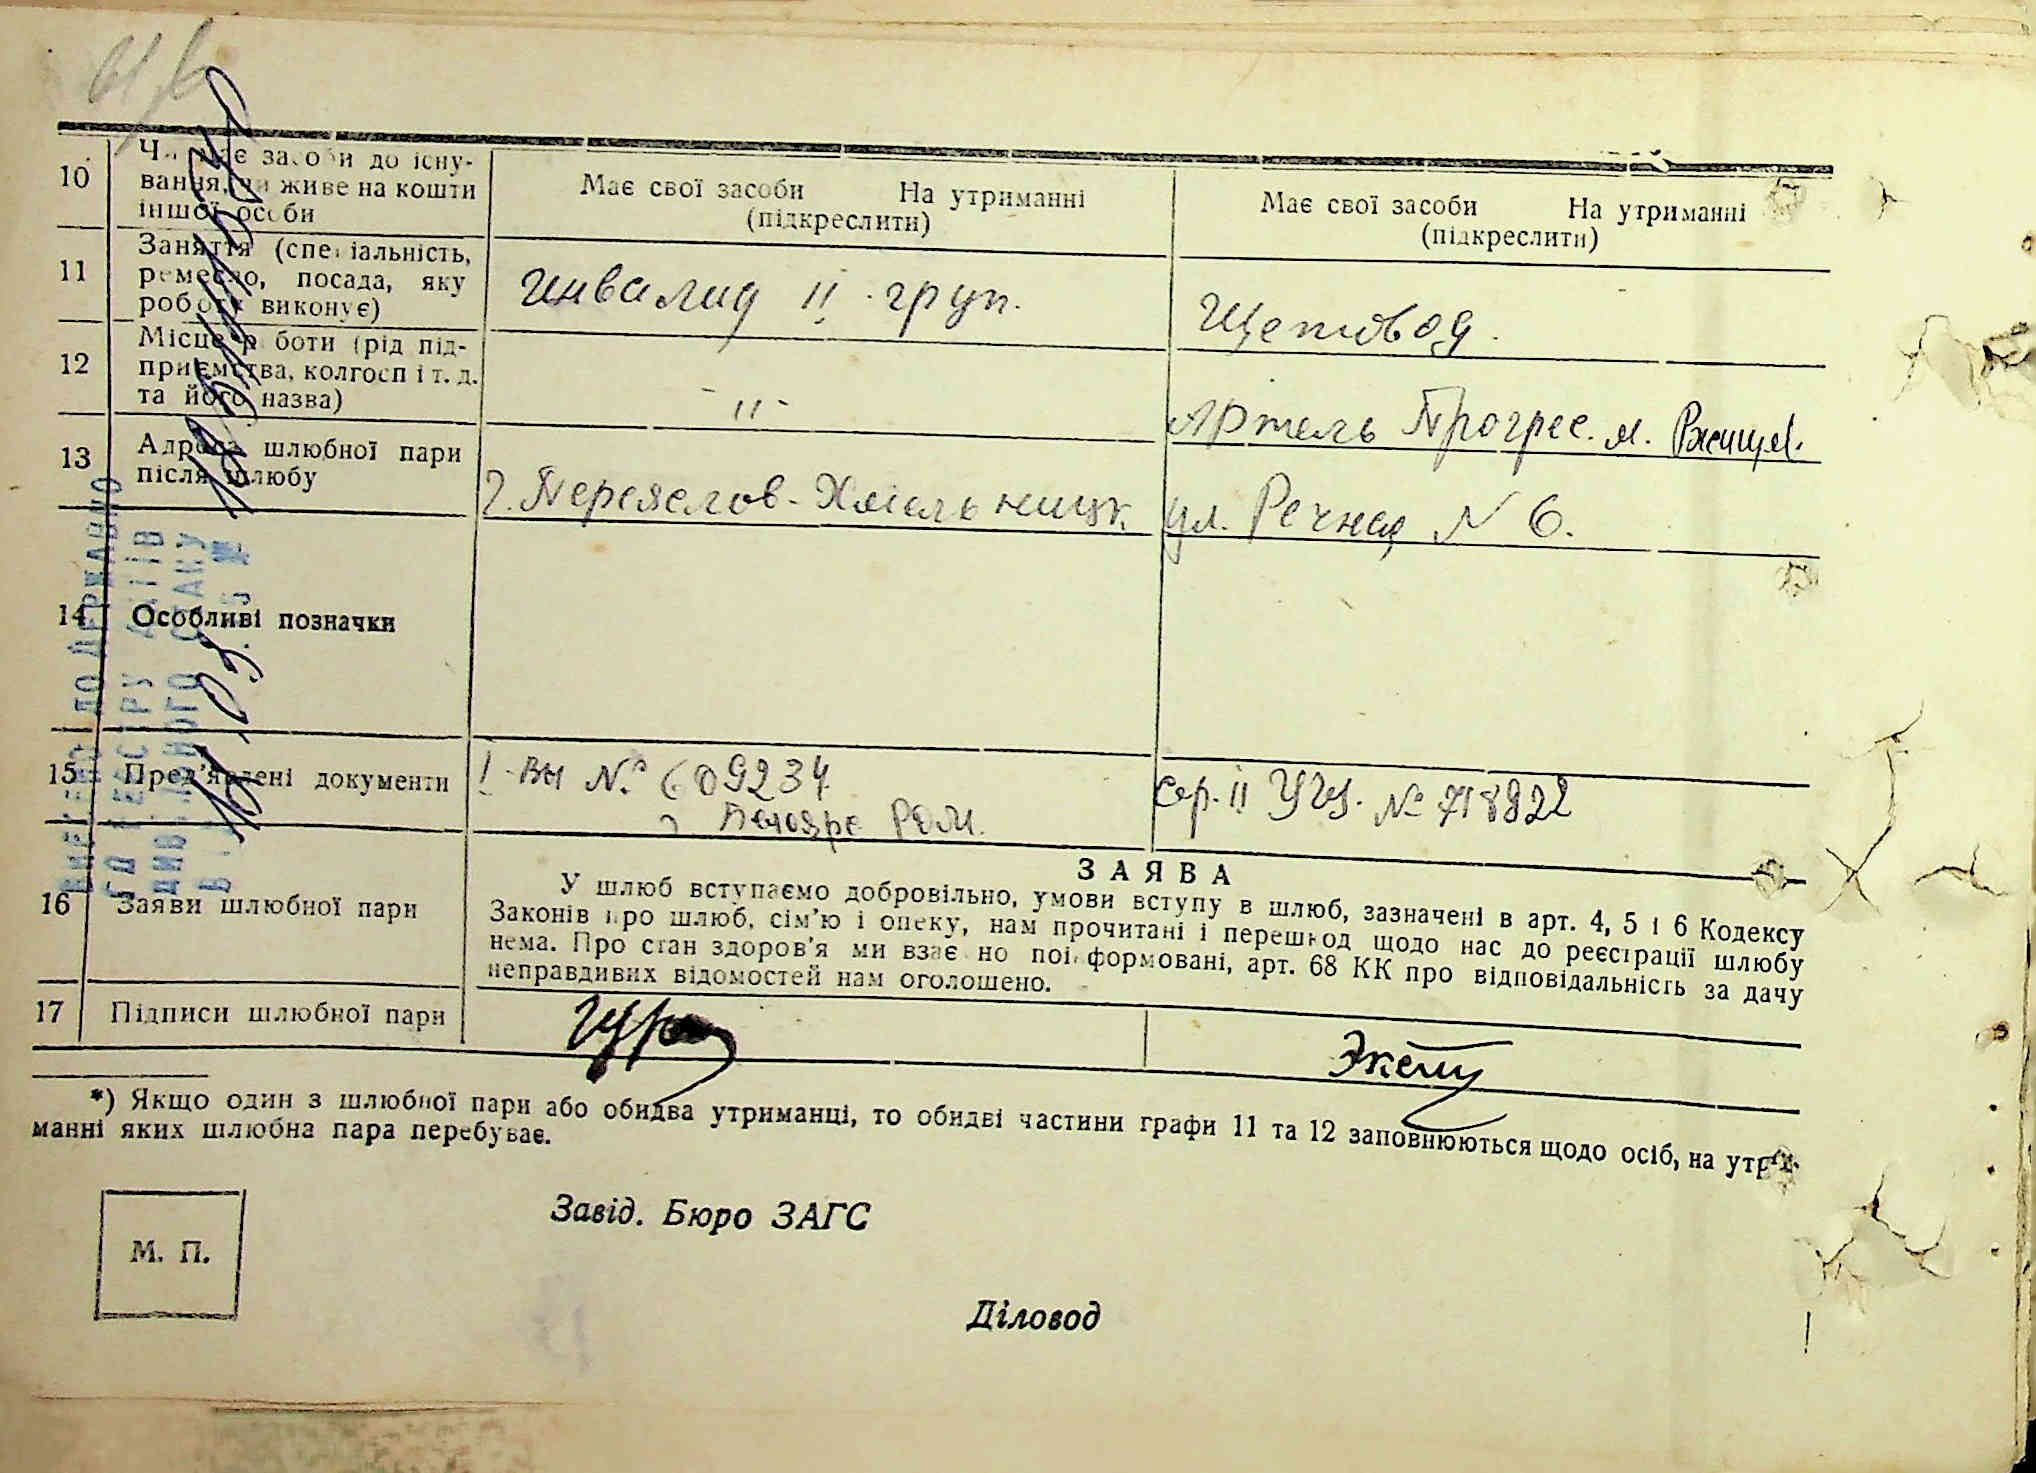 10
Чи має засоби до існу-
вання, чи живе на кошти
іншої особи
Має свої засоби На утриманні
(підкреслити)
Має свої засоби На утриманні
(підкреслити)
11
Заняття (спеціальність,
ремесло, посада, яку
роботу виконує)
Инвалид II груп.
Щетовод.
12
Місце роботи (рід під-
приємства, колгосп і т. д.
та його назва)
-"-
Артель Прогрес. м. Ржищев.
13
Адреса шлюбної пари
після шлюбу
г. Переяслов-Хмельницк.
ул. Речная N 6.
14
Особливі позначки
15
Пред'явлені документи
I-ВЫ №. 609234
РОМ.
сер. II УЧ №718922
16
Заяви шлюбної пари
ЗАЯВА
У шлюб вступаємо добровільно, умови вступу в шлюб, зазначені в арт. 4, 5 і 6 Кодексу
Законів про шлюб, сім'ю і опеку, нам прочитані і перешкод щодо нас до реєстрації шлюбу
нема. Про стан здоров'я ми взаємно поінформовані, арт. 68 КК про відповідальність за дачу
неправдивих відомостей нам оголошено.
17
Підписи шлюбної пари
*) Якщо один з шлюбної пари або обидва утриманці, то обидві частини графи 11 та 12 заповнюються щодо осіб, на утри-
манні яких шлюбна пара перебуває.
М. П.
Завід. Бюро ЗАГС
Діловод
ВНЕСЕНО ДО ДЕРЖАВНО
ГО РЕЄСТРУ АКТІВ
ЦИВІЛЬНОГО СТАНУ